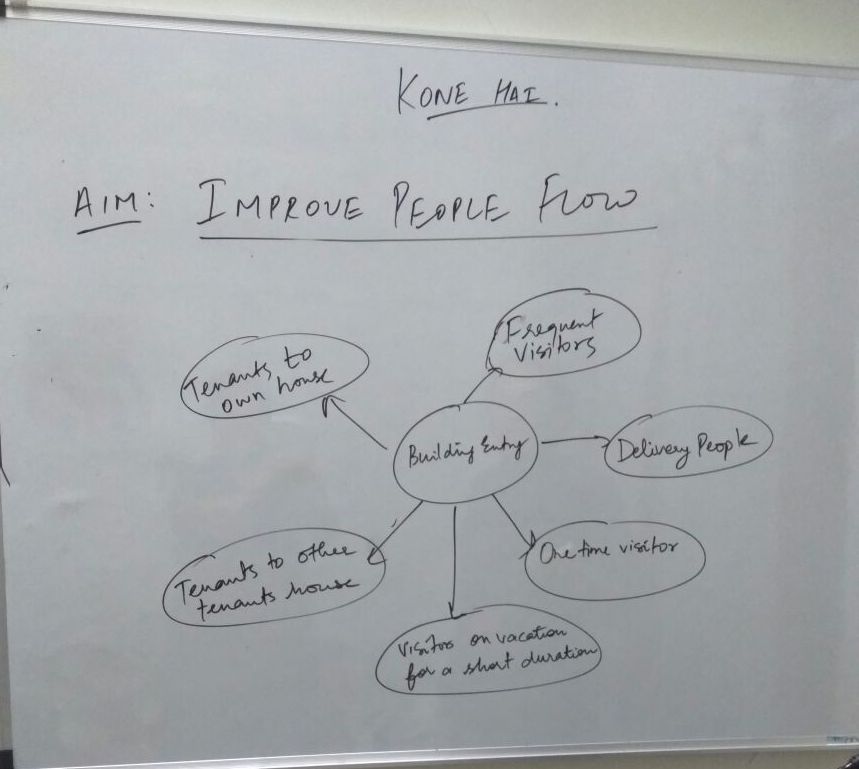 KONE HAI.
AIM: IMPROVE PEOPLE FLOW
Frequent
Visitors
Tenants to
own house
Building Entry
Delivery People
One time visitor
Tenants to other
tenants house
Visitor on vacation
for a short duration